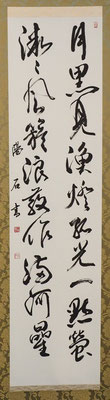 月黒見漁燈孤光一點螢
微々風簇浪散作満河星
石書